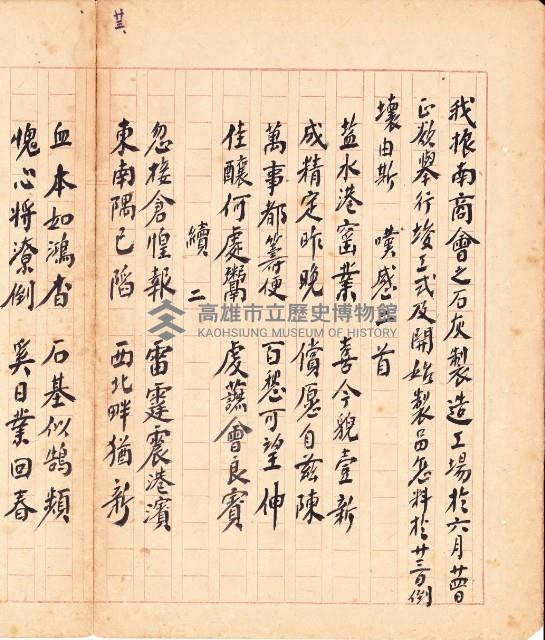 廿三
我振南商會之石灰製造工場於六月廿四日
正欲舉行竣工式及開始製品怎料於廿三日倒
壞由斯 嘆感二首
鹽水港窑業 喜今貌壹新
成精定昨晚 償愿自茲陳
萬事都籌便 百愁可望伸
佳釀何處鬻 虔蘸會良賓
續 二
忽接倉惶報 雷霆震港濱
東南隅已陷 西北畔猶新
血本如鴻杳 石基似鵠頻
愧心將潦倒 奚日業回春
高雄市立歷史博物館
KAOHSIUNG MUSEUM OF HISTORY